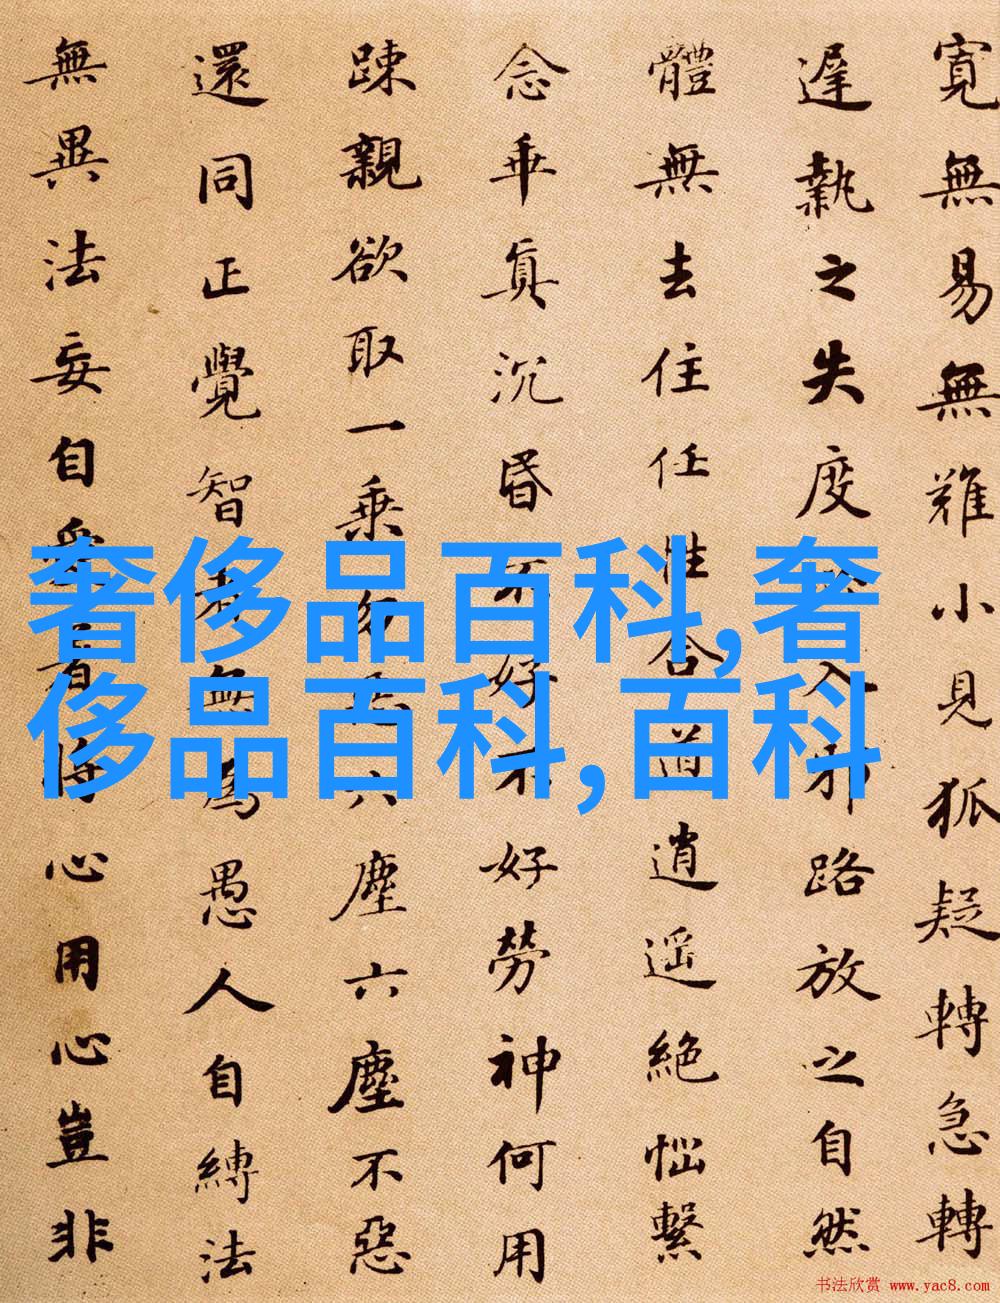 寬無易無難小見狐疑轉急轉
遲執之失度必入邪路放之自然
體無去住任性合道逍遥絕惱繫
念乖真沉昏不好不好勞神何用
踈親欲取一乗勿惡六塵六塵不惡
還同正覺智者無為愚人自縛法
無異法妄自愛著將心用心豈非
奢侈品百科,奢
侈品百科,百科
书法欣赏 www.yac8.com